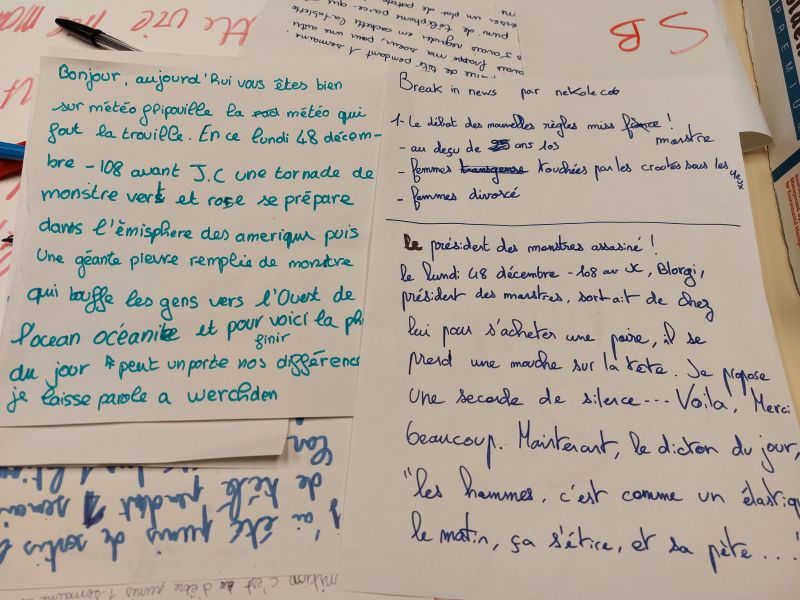 Bonjour, aujourd'hui vous êtes bien
sur météo flipouille la météo qui
fout la trouille. En ce lundi 48 décem-
bre -108 avant J.C une tornade de
monstre vert et rose se prépare
dans l'émisphere des amerique puis
Une géante pieuvre remplie de monstre
qui bouffe les gens vers l'Ouest de
l'ocean océanite et pour finir voici la ph
du jour "peut unporte nos différence
je laisse parole a werchden
Break in news par nekole
1- Le débat des nouvelles règles miss monstre !
- au deçu de ans 103
- femmes touchées par les crootes sous les yeux
- femmes divorcé
le président des monstres assasiné !
le lundi 48 décembre -108 av JC, Blorgi,
président des monstres, sortait de chez
lui pour s'acheter une poire, il se
prend une mouche sur la tête. Je propose
une seconde de silence... Voila, Merci
beaucoup. Maintenant, le dicton du jour,
"les hommes, c'est comme un élastiq
le matin, ça s'étire, et sa pète..."
SB
avais frappé ma soeur, pour une autre
j'avais regarder
téléphone en cachette
j'ai été punis de sortis
de télé pendant 1 semain